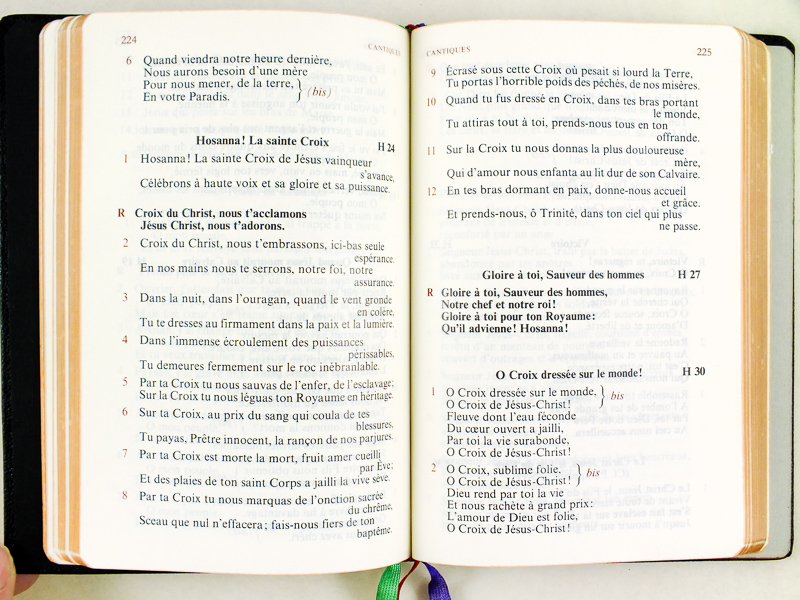 224
CANTIQUES
6 Quand viendra notre heure dernière,
Nous aurons besoin d'une mère
Pour nous mener, de la terre,
En votre Paradis.
(bis)
Hosanna! La sainte Croix
H 24
1 Hosanna! La sainte Croix de Jésus vainqueur
s'avance,
Célébrons à haute voix et sa gloire et sa puissance.
R Croix du Christ, nous t'acclamons
Jésus Christ, nous t'adorons.
2 Croix du Christ, nous t'embrassons, ici-bas seule
espérance.
En nos mains nous te serrons, notre foi, notre
assurance.
3 Dans la nuit, dans l'ouragan, quand le vent gronde
en colère,
Tu te dresses au firmament dans la paix et la lumière.
4 Dans l'immense écroulement des puissances
périssables,
Tu demeures fermement sur le roc inébranlable.
5 Par ta Croix tu nous sauvas de l'enfer, de l'esclavage;
Sur la Croix tu nous léguas ton Royaume en héritage.
6 Sur ta Croix, au prix du sang qui coula de tes
blessures,
Tu payas, Prêtre innocent, la rançon de nos parjures.
7 Par ta Croix est morte la mort, fruit amer cueilli
par Ève;
Et des plaies de ton saint Corps a jailli la vive sève.
8 Par ta Croix tu nous marquas de l'onction sacrée
du chrême,
Sceau que nul n'effacera; fais-nous fiers de ton
baptême.
CANTIQUES
225
9 Écrasé sous cette Croix où pesait si lourd la Terre,
Tu portas l'horrible poids des péchés, de nos misères.
10 Quand tu fus dressé en Croix, dans tes bras portant
le monde,
Tu attiras tout à toi, prends-nous tous en ton
offrande.
11 Sur la Croix tu nous donnas la plus douloureuse
mère,
Qui d'amour nous enfanta au lit dur de son Calvaire.
12 En tes bras dormant en paix, donne-nous accueil
et grâce.
Et prends-nous, ô Trinité, dans ton ciel qui plus
ne passe.
Gloire à toi, Sauveur des hommes
H 27
R Gloire à toi, Sauveur des hommes,
Notre chef et notre roi!
Gloire à toi pour ton Royaume:
Qu'il advienne! Hosanna!
O Croix dressée sur le monde!
H 30
1 O Croix dressée sur le monde,
O Croix de Jésus-Christ!
bis
Fleuve dont l'eau féconde
Du cœur ouvert a jailli,
Par toi la vie surabonde,
O Croix de Jésus-Christ!
2 O Croix, sublime folie,
O Croix de Jésus-Christ!
bis
Dieu rend par toi la vie
Et nous rachète à grand prix:
L'amour de Dieu est folie,
O Croix de Jésus-Christ!